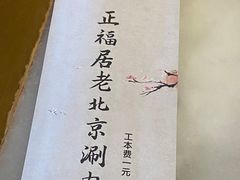 正福居老北京涮
工本费一元